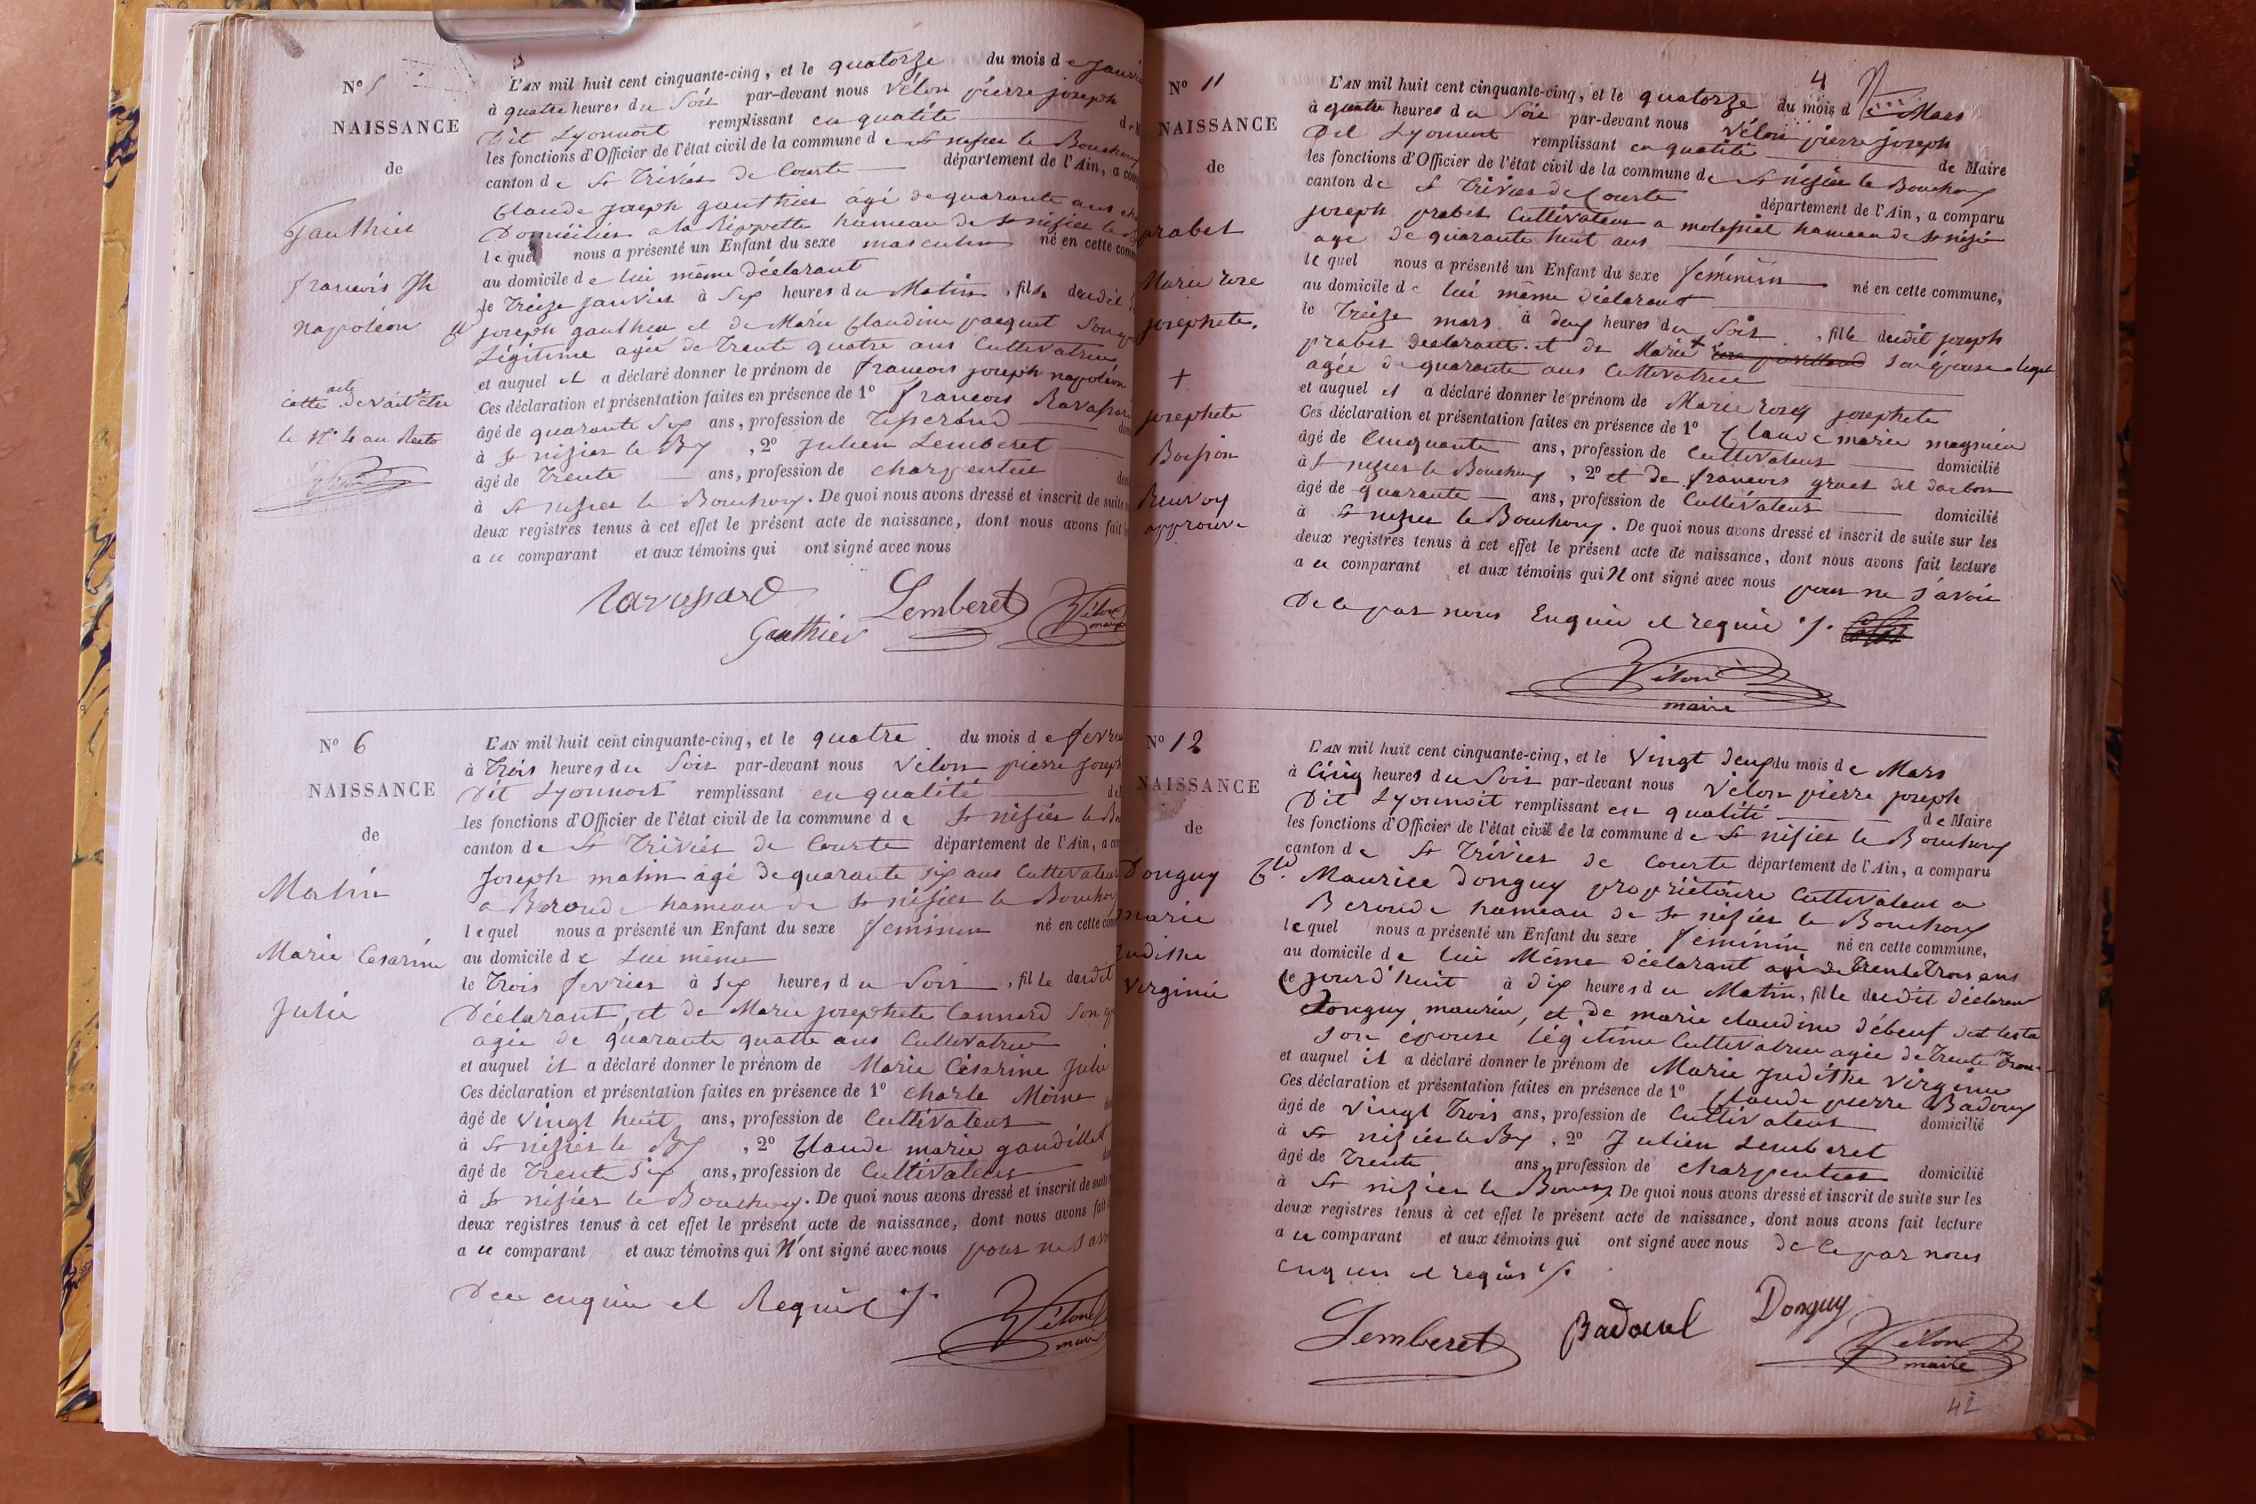 Nº 5
NAISSANCE
de
Gauthier
francois Jh
Napoléon
acte
cette devait être
le Nº 4 au Recto
L'AN mil huit cent cinquante-cinq, et le quatorze du mois de Janvi
à quatre heures du Soir par-devant nous Vélon pierre joseph
Dit Lyonnoit remplissant en qualité
les fonctions d'Officier de l'état civil de la commune de St nisier le Bouchoux
canton de St Triviés de Courte département de l'Ain, a com
Claude joseph gauthier âgé de quarante ans
Domicilié a la Rippette hameau de St nisier le
lequel nous a présenté un Enfant du sexe masculin né en cette com
au domicile de lui même déclarant
le Treize janvier à Six heures du Matin, fils dudit
joseph gauthier et de Marie Claudine pacquet Son
Légitime agée de trente quatre ans Cultivatrice
et auquel il a déclaré donner le prénom de francois joseph napoléon
Ces déclaration et présentation faites en présence de 1º francois Ravassard
âgé de quarante Six ans, profession de Tisserand
à St nisier le By, 2º Julien Lemberet
âgé de Trente ans, profession de charpentier
à St nisier le Bouchoux. De quoi nous avons dressé et inscrit de suite
deux registres tenus à cet effet le présent acte de naissance, dont nous avons fait
a ce comparant et aux témoins qui ont signé avec nous
Ravassard Lemberet Vélon
Gauthier maire
Nº 6
NAISSANCE
de
Matin
Marie Cesarine
Julie
L'AN mil huit cent cinquante-cinq, et le quatre du mois de fevri
à Trois heures du Soir par-devant nous Vélon pierre joseph
Dit Lyonnoit remplissant en qualité
les fonctions d'Officier de l'état civil de la commune de St nisier le Bo
canton de St Triviés de Courte département de l'Ain, a com
Joseph matin âgé de quarante six ans Cultivateur
a Beroude hameau de St nisier le Bouchoux
lequel nous a présenté un Enfant du sexe feminin né en cette com
au domicile de Lui même
le Trois fevrier à Six heures du Soir, fille dudit
Déclarant, et de Marie josephete Cannard Son
agée de quarante quatre ans Cultivatrice
et auquel il a déclaré donner le prénom de Marie Césarine Julie
Ces déclaration et présentation faites en présence de 1º charle Moine
âgé de Vingt huit ans, profession de Cultivateur
à St nisier le By, 2º Claude marie gaudillet
âgé de Trente Six ans, profession de Cultivateur
à St nisier le Bouchoux. De quoi nous avons dressé et inscrit de suite
deux registres tenus à cet effet le présent acte de naissance, dont nous avons fait
a ce comparant et aux témoins qui N'ont signé avec nous pour ne savo
De ce enquis et Requis ./.
Vélon
maire
4
Nº 11
NAISSANCE
de
prabet
Marie rose
josephete.
+
josephete
Boission
Renvoy
approuvé
L'AN mil huit cent cinquante-cinq, et le quatorze du mois de Mars
à quatre heures du Soir par-devant nous Vélon pierre joseph
Dit Lyonnoit remplissant en qualité de Maire
les fonctions d'Officier de l'état civil de la commune de St nisier le Bouchoux
canton de St Triviés de Courte département de l'Ain, a comparu
joseph prabet Cultivateur a hameau de St nisié
age de quarante huit ans
lequel nous a présenté un Enfant du sexe féminin né en cette commune,
au domicile de lui même déclarant
le Treize mars à deux heures du Soir, fille dudit joseph
prabet déclarant et de Marie + Son épouse
agée de quarante ans Cultivatrice
et auquel il a déclaré donner le prénom de Marie rose josephete
Ces déclaration et présentation faites en présence de 1º Claude marie magnien
âgé de Cinquante ans, profession de Cultivateur domicilié
à St nisier le Bouchoux, 2º et de francois gruet dit darbon
âgé de quarante ans, profession de Cultivateur domicilié
à St nisier le Bouchoux. De quoi nous avons dressé et inscrit de suite sur les
deux registres tenus à cet effet le présent acte de naissance, dont nous avons fait lecture
a ce comparant et aux témoins qui N'ont signé avec nous pour ne savoir
De ce par nous Enquis et requis ./.
Vélon
maire
Nº 12
NAISSANCE
de
Donguy
marie
Judithe
Virginie
L'AN mil huit cent cinquante-cinq, et le Vingt deux du mois de Mars
à Cinq heures du Soir par-devant nous Vélon pierre joseph
Dit Lyonnoit remplissant en qualité de Maire
les fonctions d'Officier de l'état civil de la commune de St nisier le Bouchoux
canton de St Triviés de Courte département de l'Ain, a comparu
Maurice Donguy propriétaire Cultivateur a
Beroude hameau de St nisier le Bouchoux
lequel nous a présenté un Enfant du sexe féminin né en cette commune,
au domicile de lui Même déclarant agé de trente trois ans
le jourd'huit à dix heures du Matin, fille dudit déclaran
Donguy maurice, et de marie claudine débeuf
son épouse légitime Cultivatrice agée de trente trois
et auquel il a déclaré donner le prénom de Marie Judithe Virginie
Ces déclaration et présentation faites en présence de 1º Claude pierre Badoux
âgé de Vingt Trois ans, profession de Cultivateur domicilié
à St nisier le By, 2º Julien Lemberet
âgé de Trente ans, profession de charpentier domicilié
à St nisier le Boux. De quoi nous avons dressé et inscrit de suite sur les
deux registres tenus à cet effet le présent acte de naissance, dont nous avons fait lecture
a ce comparant et aux témoins qui ont signé avec nous de ce par nous
enquis et requis ./.
Lemberet Badoux Donguy Vélon
maire
42